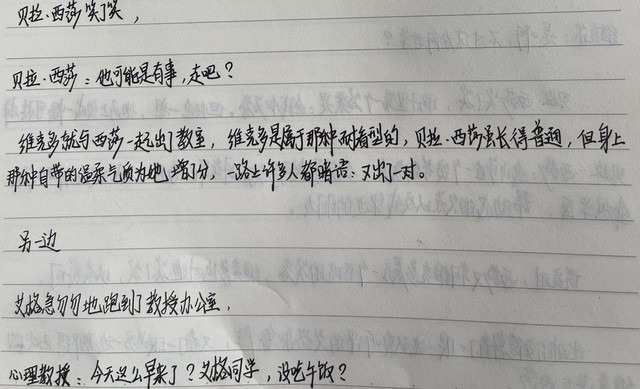 贝拉·西莎笑了笑，
贝拉·西莎：他可能是有事，走吧？
维克多就与西莎一起出了教室，维克多是属于那种耐看型的，贝拉·西莎虽长得普通，但身上
那种自带的温柔气质为她增了分，一路上许多人都暗语：又出了一对。
另一边
艾格急匆匆地跑到了教授办公室，
心理教授：今天这么早来了？艾格同学，没吃午饭？